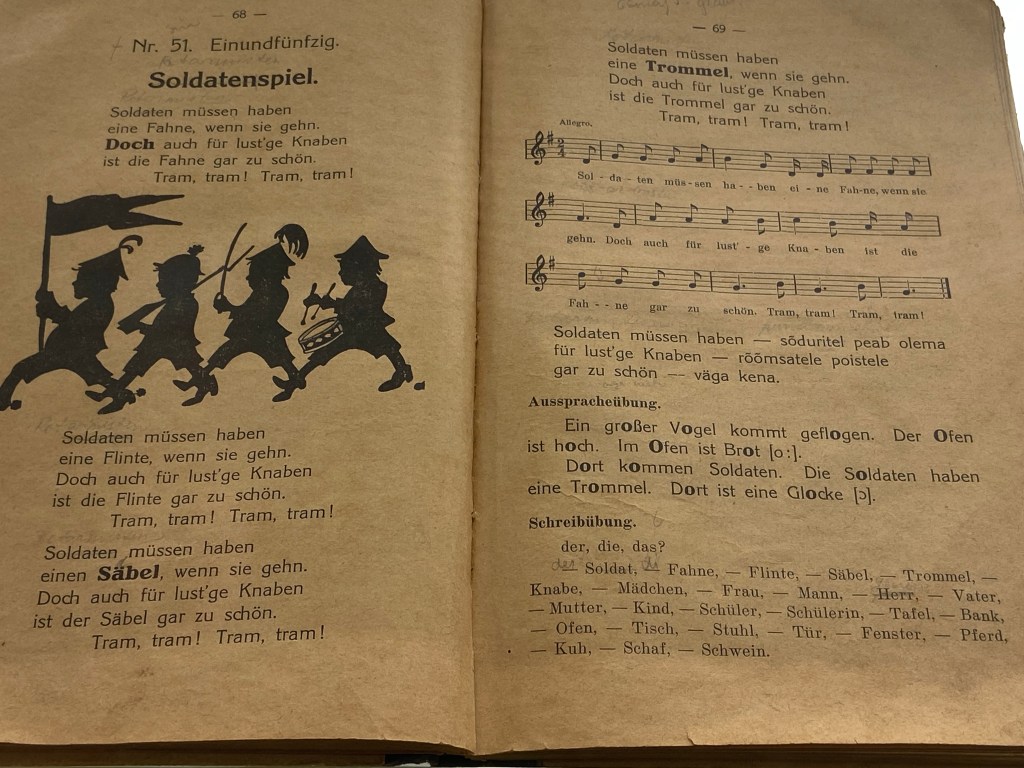 — 68 —
Nr. 51. Einundfünfzig.
Soldatenspiel.
Soldaten müssen haben
eine Fahne, wenn sie gehn.
Doch auch für lust'ge Knaben
ist die Fahne gar zu schön.
Tram, tram! Tram, tram!
Soldaten müssen haben
eine Flinte, wenn sie gehn.
Doch auch für lust'ge Knaben
ist die Flinte gar zu schön.
Tram, tram! Tram, tram!
Soldaten müssen haben
einen Säbel, wenn sie gehn.
Doch auch für lust'ge Knaben
ist der Säbel gar zu schön.
Tram, tram! Tram, tram!
— 69 —
Soldaten müssen haben
eine Trommel, wenn sie gehn.
Doch auch für lust'ge Knaben
ist die Trommel gar zu schön.
Tram, tram! Tram, tram!
Allegro.
2 4
Sol - da - ten müs - sen ha - - ben ei - ne Fah-ne, wenn sie
gehn. Doch auch für lust' - ge Kna - ben ist die
Fah - - ne gar zu schön. Tram, tram! Tram, tram!
Soldaten müssen haben — sõduritel peab olema
für lust'ge Knaben — rõõmsatele poistele
gar zu schön — väga kena.
Ausspracheübung.
Ein großer Vogel kommt geflogen. Der Ofen
ist hoch. Im Ofen ist Brot [o:].
Dort kommen Soldaten. Die Soldaten haben
eine Trommel. Dort ist eine Glocke [ɔ].
Schreibübung.
der, die, das?
der Soldat, Fahne, — Flinte, — Säbel, — Trommel, —
Knabe, — Mädchen, — Frau, — Mann, — Herr, — Vater,
— Mutter, — Kind, — Schüler, — Schülerin, — Tafel, — Bank,
— Ofen, — Tisch, — Stuhl, — Tür, — Fenster, — Pferd,
— Kuh, — Schaf, — Schwein.